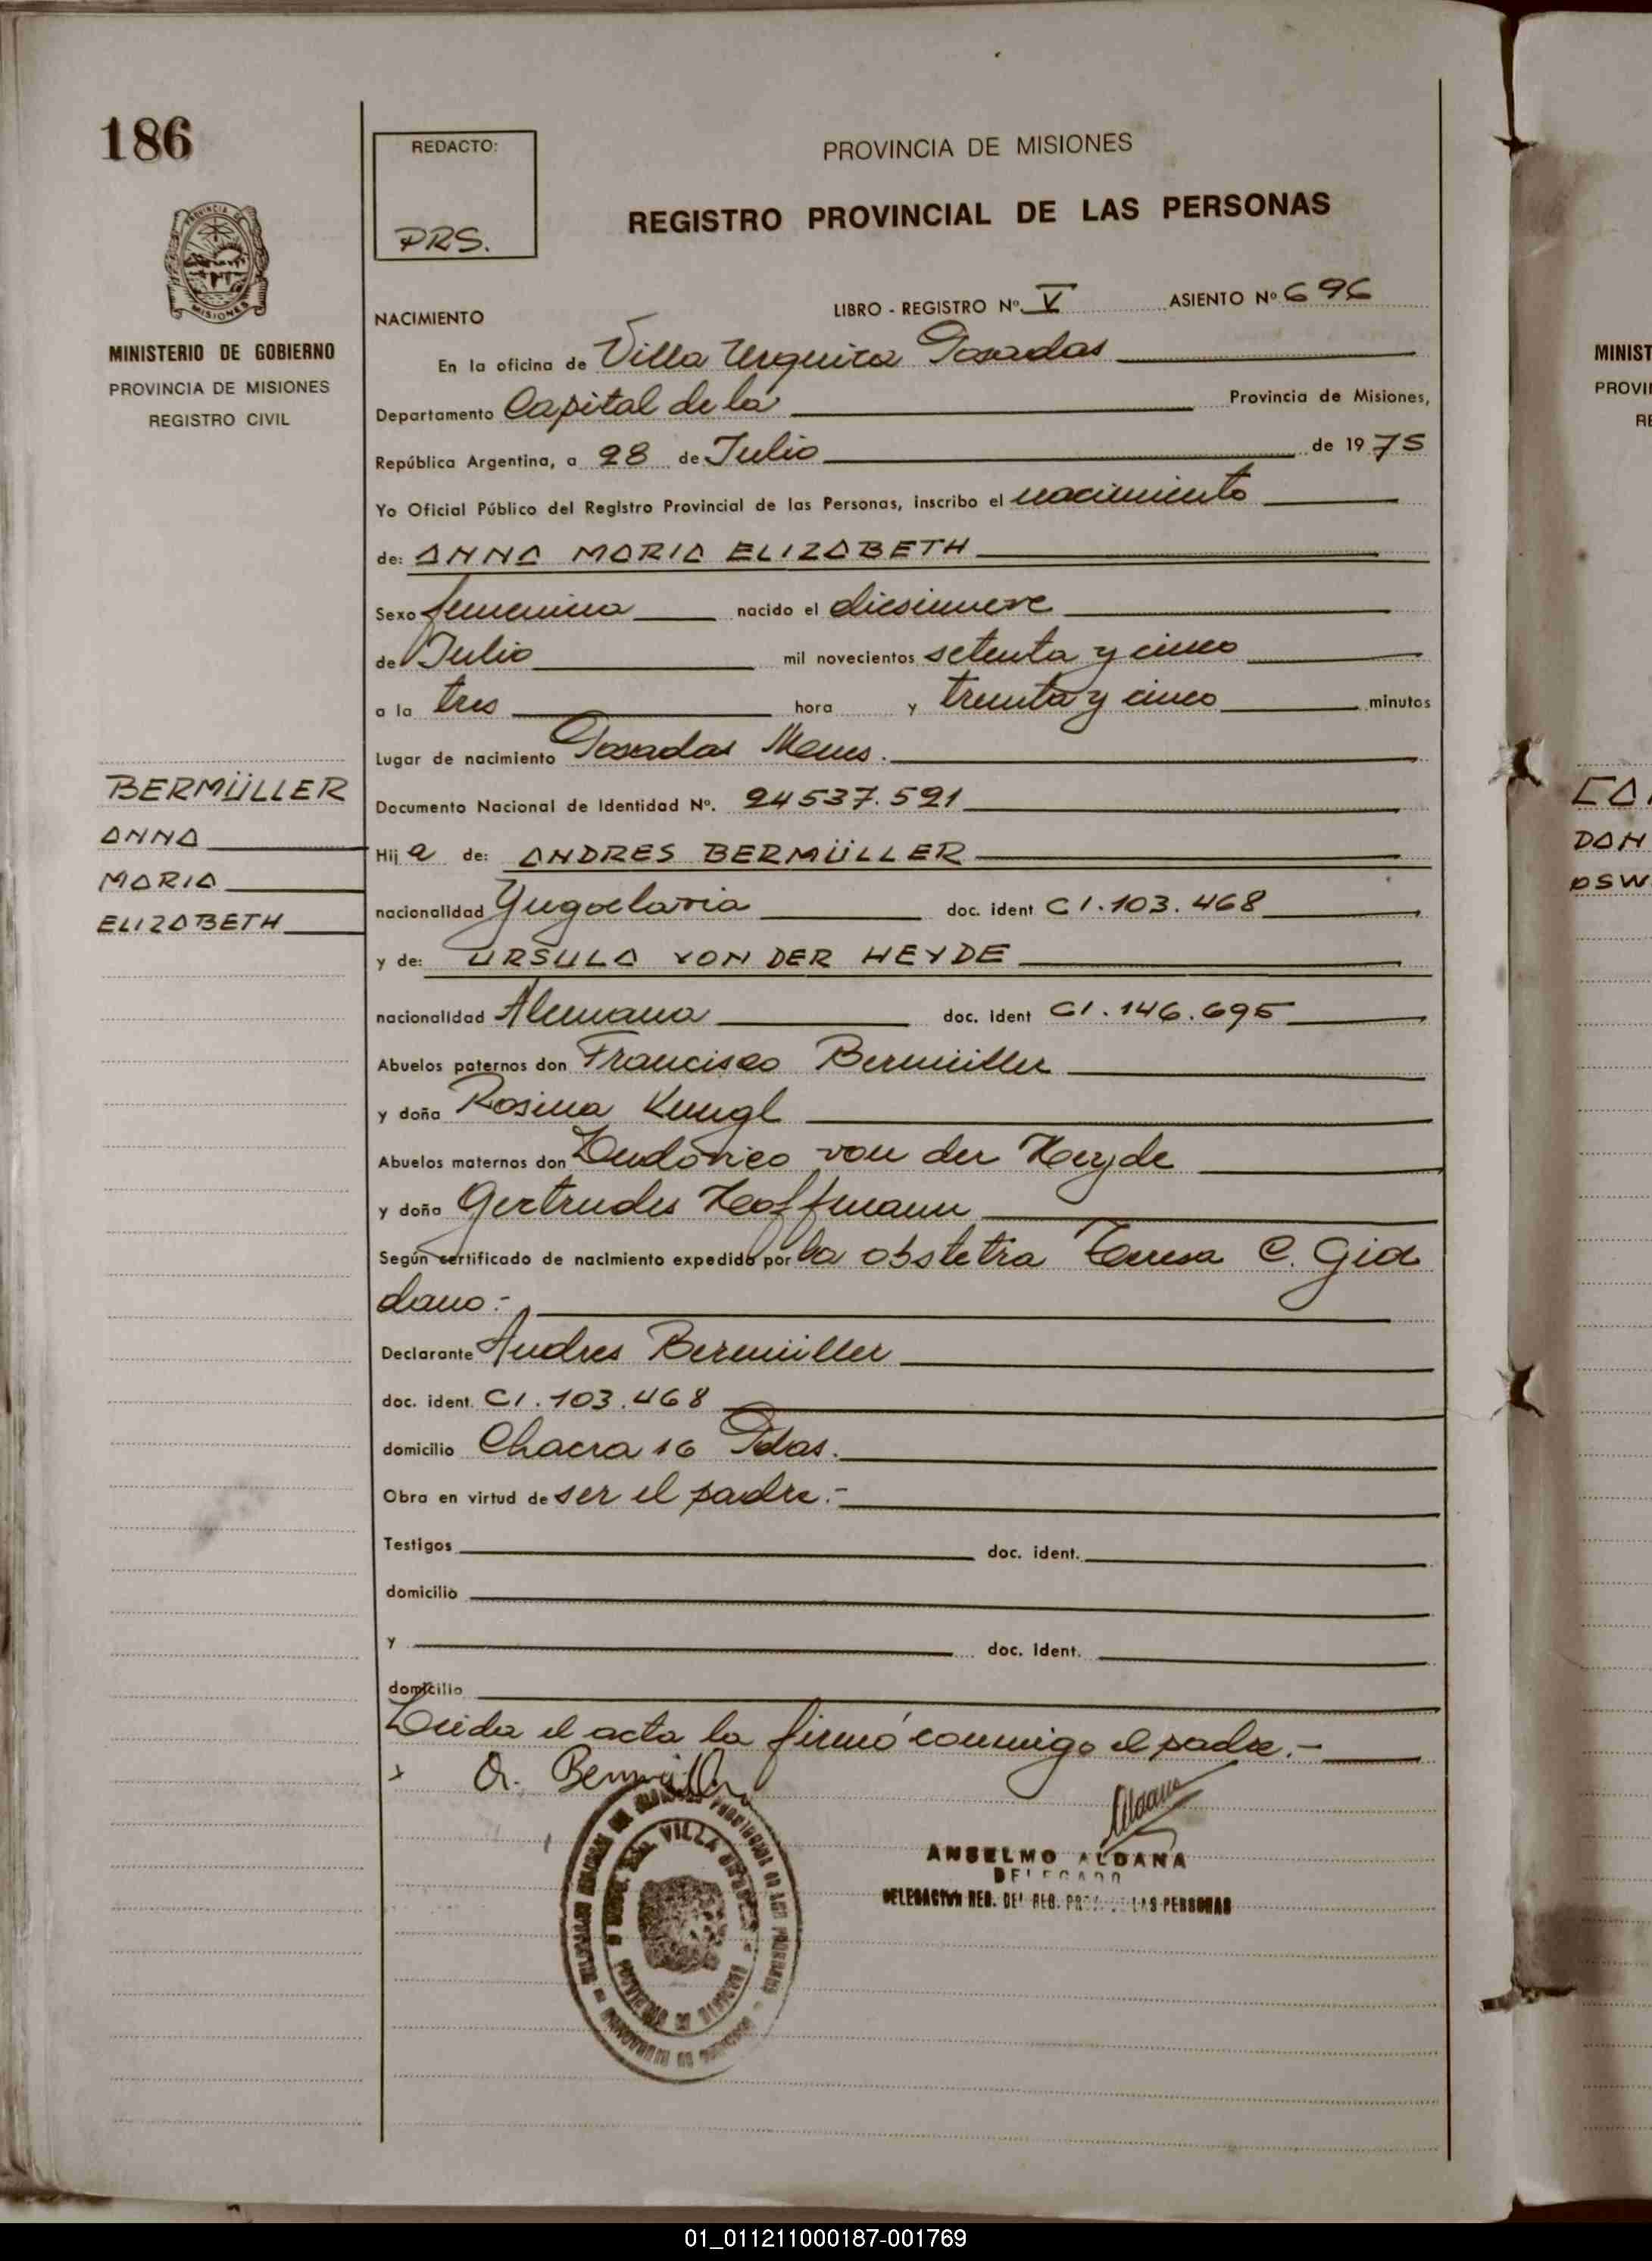 186
REDACTO:
PRS.
PROVINCIA DE MISIONES
REGISTRO PROVINCIAL DE LAS PERSONAS
MISIONES
MINISTERIO DE GOBIERNO
PROVINCIA DE MISIONES
REGISTRO CIVIL
NACIMIENTO
LIBRO - REGISTRO Nº V ASIENTO Nº 696
En la oficina de Villa Urquiza Posadas
Departamento Capital de la Provincia de Misiones,
República Argentina, a 28 de Julio de 1975
Yo Oficial Público del Registro Provincial de las Personas, inscribo el nacimiento
de: ANNA MARIA ELIZABETH
Sexo femenino nacido el diesinueve
de Julio mil novecientos setenta y cinco
a la tres hora y treinta y cinco minutos
Lugar de nacimiento Posadas Mnes.
Documento Nacional de Identidad Nº. 24537.521
BERMÜLLER
ANNA
MARIA
ELIZABETH
Hija de: ANDRES BERMÜLLER
nacionalidad Yugoelavia doc. ident CI.103.468
y de: URSULA VON DER HEYDE
nacionalidad Alemana doc. ident CI.146.695
Abuelos paternos don Francisco Bermüller
y doña Rosina Kungl
Abuelos maternos don Ludovico von der Heyde
y doña Gertrudes Hoffmann
Según certificado de nacimiento expedido por la obstetra Teresa C. Gia
dano:-
Declarante Andres Bermüller
doc. ident. CI.103.468
domicilio Chacra 16 Pdas.
Obra en virtud de ser el padre.-
Testigos doc. ident.
domicilio
y doc. ident.
domicilio
Leida el acta la firmó conmigo el padre.-
x A. Bermüller
Aldana
ANSELMO ALDANA
DELEGADO
DELEGACION REG. DEL REG. PROV. LAS PERSONAS
VILLA
MINIST
PROVI
RE
DAN
OSW
01_011211000187-001769